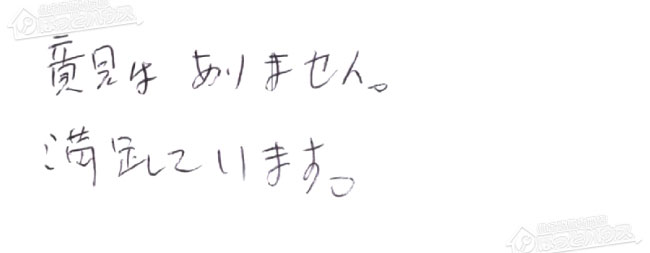 意見は ありません。
満足しています。